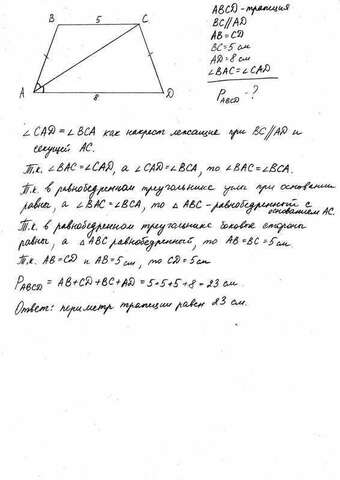 B 5 C
A 8 D
ABCD - трапеция
BC//AD
AB = CD
BC = 5 см
AD = 8 см
∠BAC = ∠CAD
P_ABCD - ?
∠CAD = ∠BCA как накрест лежащие при BC//AD и
секущей AC.
Т.к. ∠BAC = ∠CAD, а ∠CAD = ∠BCA, то ∠BAC = ∠BCA.
Т.к. в равнобедренном треугольнике углы при основании
равны, а ∠BAC = ∠BCA, то △ABC - равнобедренный с
основанием AC.
Т.к. в равнобедренном треугольнике боковые стороны
равны, а △ABC равнобедренный, то AB = BC = 5 см.
Т.к. AB = CD и AB = 5 см, то CD = 5 см
P_ABCD = AB + CD + BC + AD = 5 + 5 + 5 + 8 = 23 см.
Ответ: периметр трапеции равен 23 см.